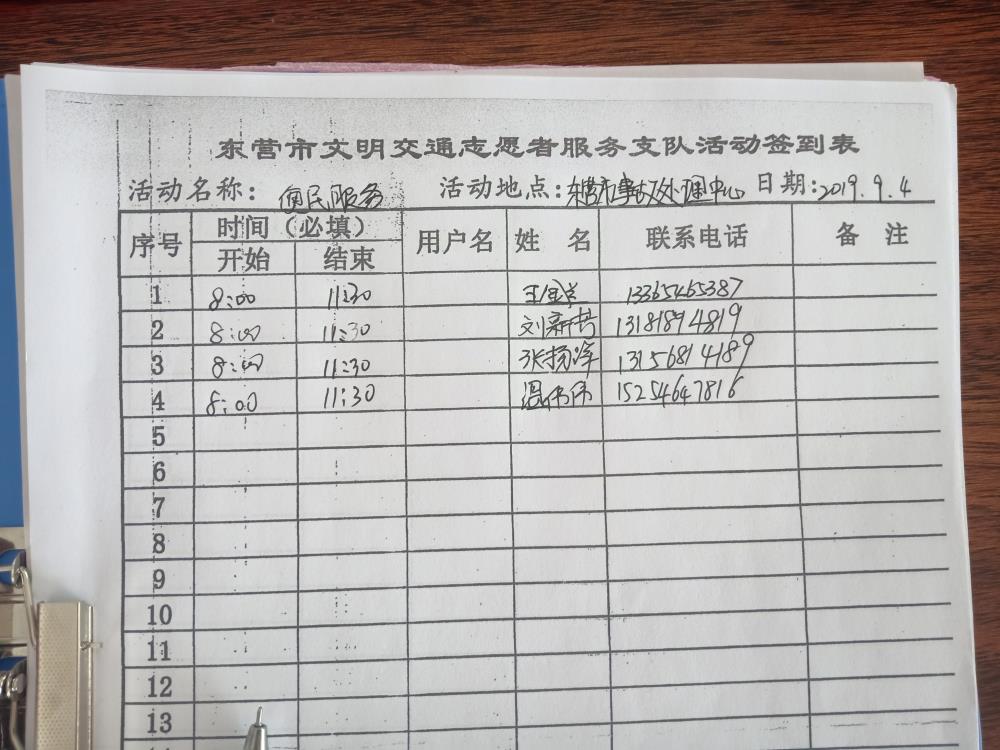 东营市文明交通志愿者服务支队活动签到表
活动名称：便民服务 活动地点：东营市事故处理中心 日期：2019.9.4
序号 时间（必填） 用户名 姓 名 联系电话 备 注
开始 结束
1 8:00 11:30 13365465387
2 8:00 11:30 13181894819
3 8:00 11:30 张扬泽 13156814189
4 8:00 11:30 温伟伟 15254647816
5
6
7
8
9
10
11
12
13